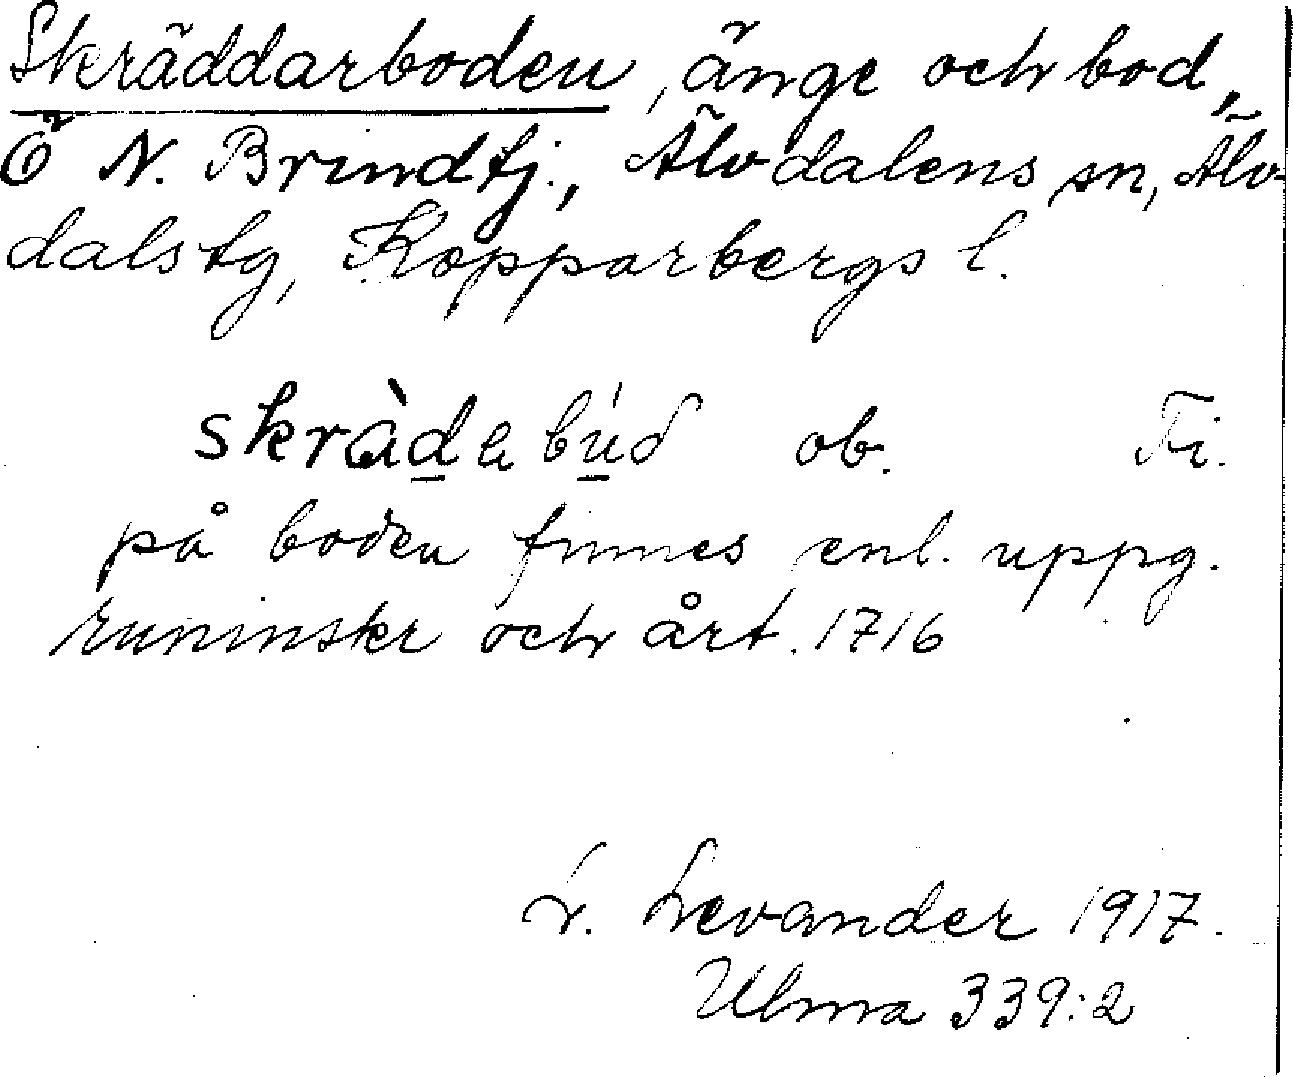 Skräddarboden, änge och bod,
Ö N. Brindtj., Älvdalens sn, Älv-
dals tg, Kopparbergs l.
skràdabúd ob. Ti.
på boden finnes enl. uppg.
runinskr och årt. 1716
L. Levander 1917.
Ulma 339:2